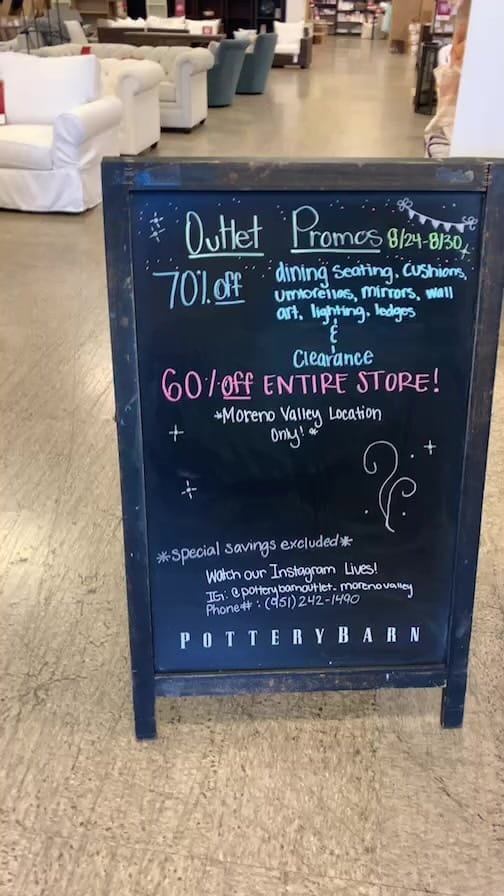 Outlet Promos 8/24-8/30
70% off dining seating, cushions,
umbrellas, mirrors, wall
art, lighting, ledges
&
Clearance
60% off ENTIRE STORE!
*Moreno Valley Location
Only! *
*special savings excluded*
Watch our Instagram Lives!
IG: @potterybarnoutlet.morenovalley
Phone# : (951) 242-1490
POTTERYBARN